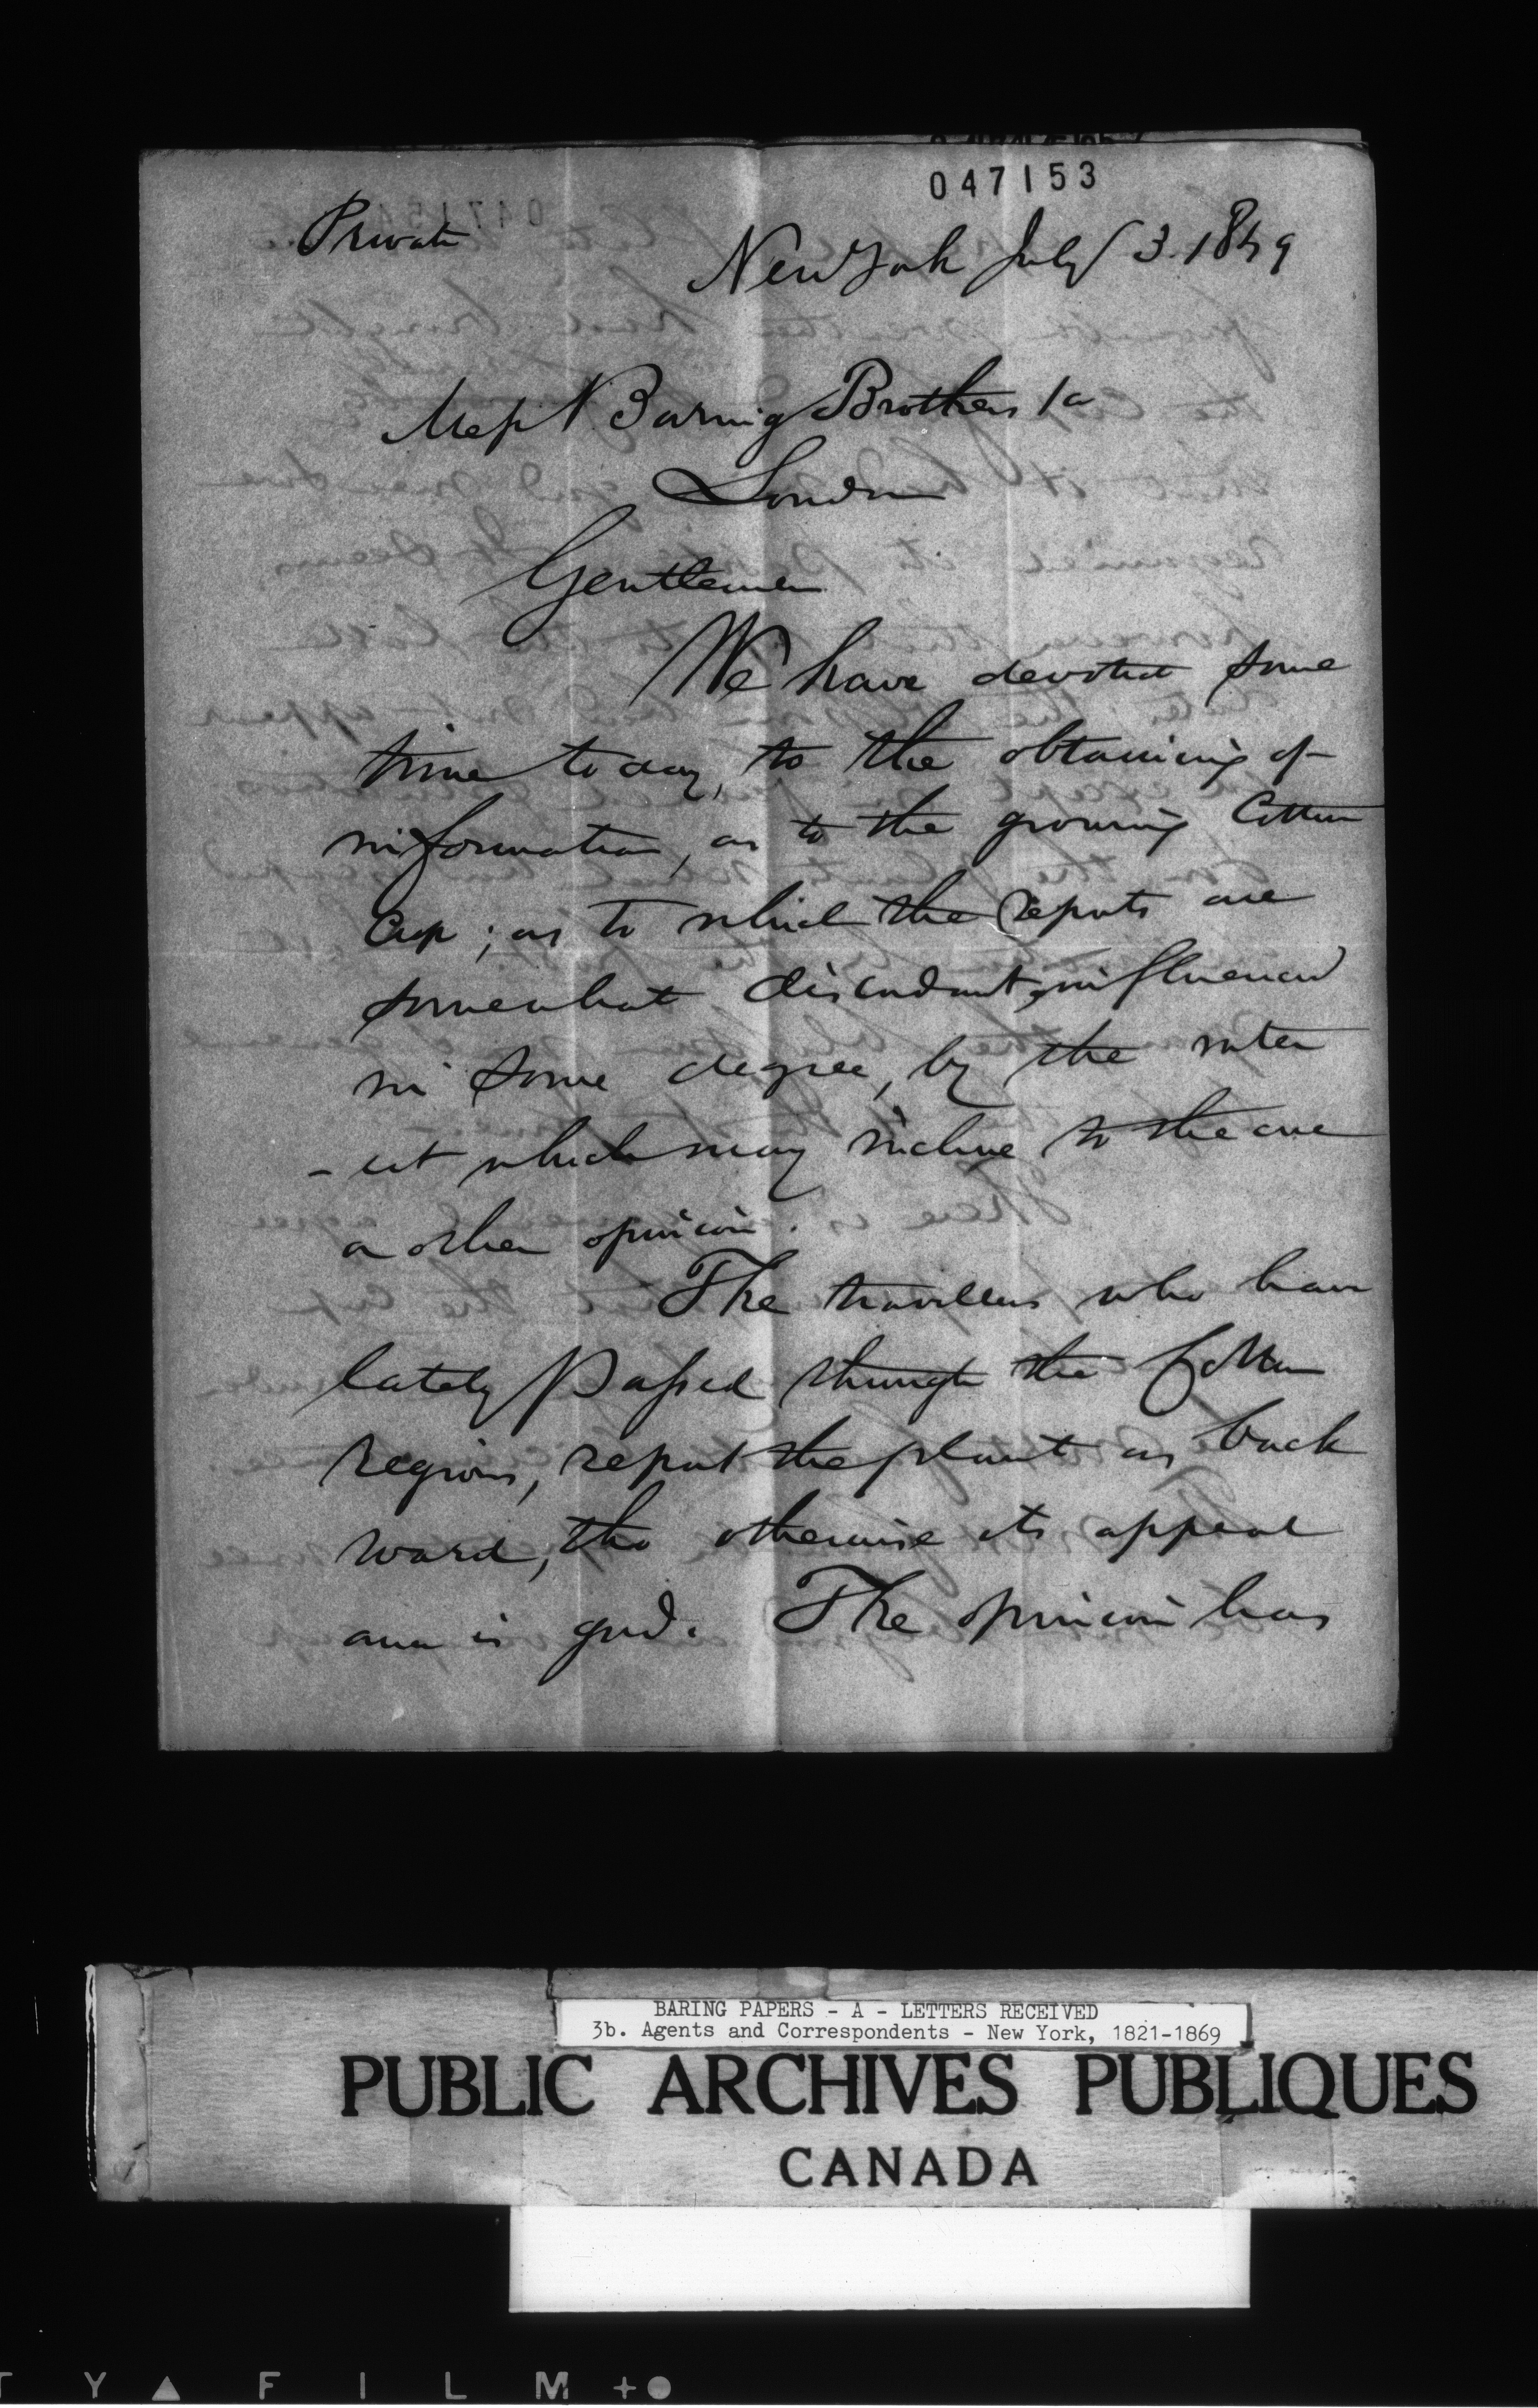 047153
Private
New York July 3. 1849
Messrs Baring Brothers &Co
London
Gentlemen
We have devoted some
time to day, to the obtaining of
information, as to the growing Cotton
Crop; as to which the reports are
somewhat discordant, influenced
in some degree, by the inter
-est which may incline to the one
or other opinion.
The travellers who have
lately passed through the Cotton
regions, report the plant as back
ward, tho otherwise its appear
ance is good. The opinion has
BARING PAPERS - A - LETTERS RECEIVED
3b. Agents and Correspondents - New York, 1821-1869
PUBLIC ARCHIVES PUBLIQUES
CANADA
T Y F I L M